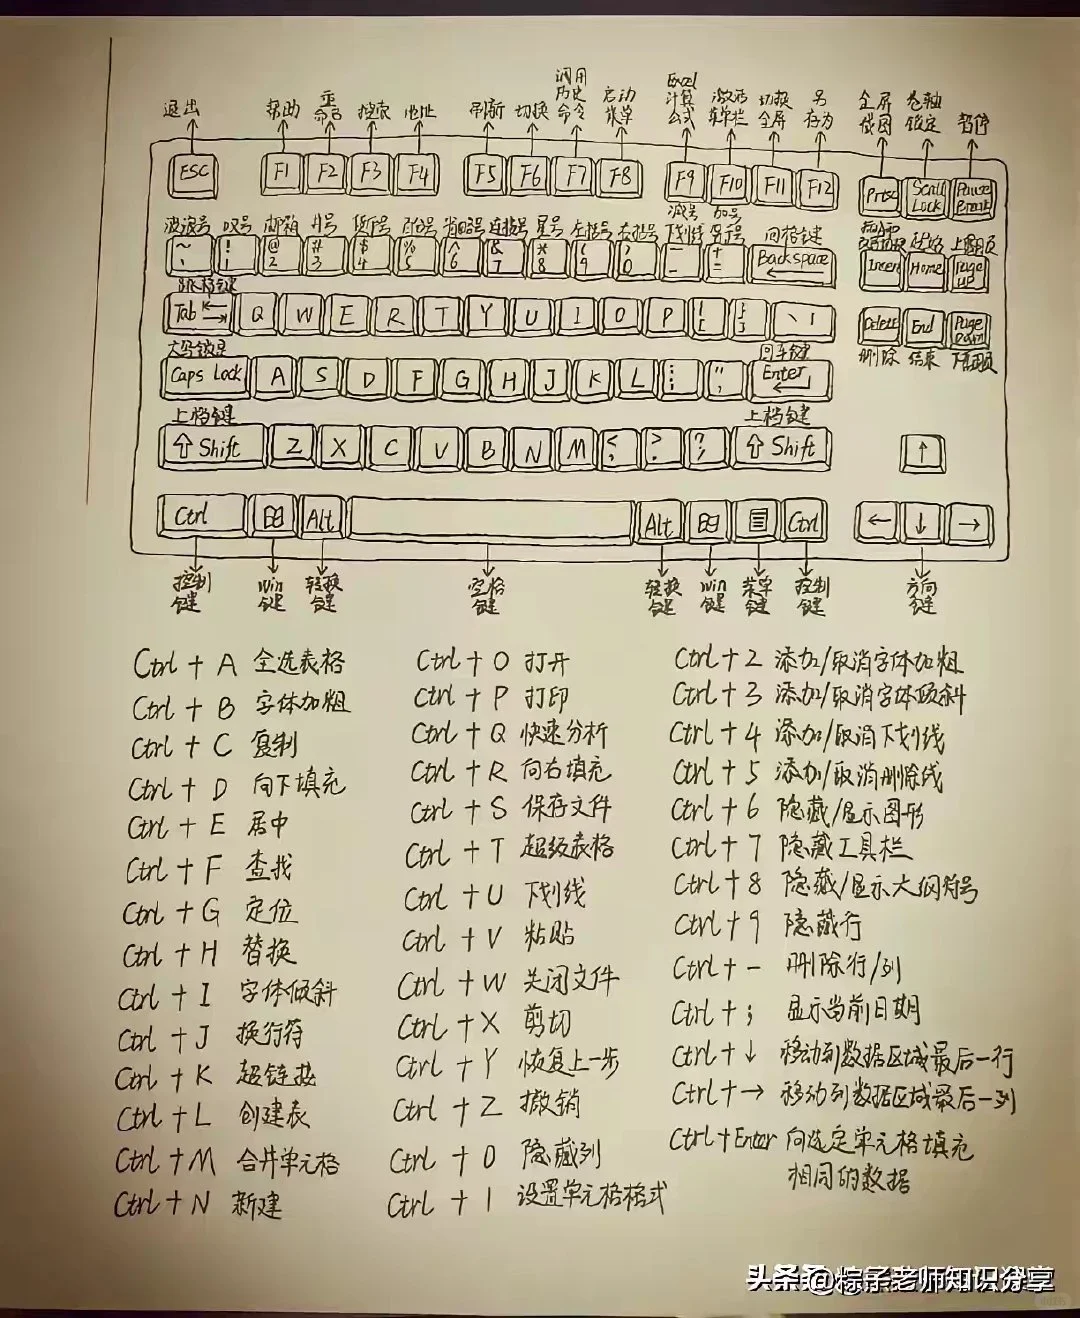 退出 帮助 重命名 搜索 地址 刷新 切换 调用历史命令 启动菜单 Excel计算公式 激活菜单栏 切换全屏 另存为 全屏截图 卷轴锁定 暂停
ESC F1 F2 F3 F4 F5 F6 F7 F8 F9 F10 F11 F12 Prtsc Scroll Lock Pause Break
波浪号 叹号 邮箱 井号 货币号 百分号 省略号 连接号 星号 左括号 右括号 减号下划线 加号等于号 间格键 起始 上翻页
~ ! @ # $ % ^ & * ( ) _ +
1 2 3 4 5 6 7 8 9 0 - = Back space Insert Home Page up
制表格键
Tab Q W E R T Y U I O P { [ } ] \ | Delete End Page Down
删除 结束 下翻页
大写锁定 回车键
Caps Lock A S D F G H J K L : ; " ' Enter
上档键 上档键
Shift Z X C V B N M < , > . ? / Shift ↑
Ctrl Alt Alt Ctrl ← ↓ →
控制键 Win键 轻换键 空格键 轻换键 Win键 菜单键 控制键 方向键
Ctrl + A 全选表格
Ctrl + B 字体加粗
Ctrl + C 复制
Ctrl + D 向下填充
Ctrl + E 居中
Ctrl + F 查找
Ctrl + G 定位
Ctrl + H 替换
Ctrl + I 字体倾斜
Ctrl + J 换行符
Ctrl + K 超链接
Ctrl + L 创建表
Ctrl + M 合并单元格
Ctrl + N 新建
Ctrl + O 打开
Ctrl + P 打印
Ctrl + Q 快速分析
Ctrl + R 向右填充
Ctrl + S 保存文件
Ctrl + T 超级表格
Ctrl + U 下划线
Ctrl + V 粘贴
Ctrl + W 关闭文件
Ctrl + X 剪切
Ctrl + Y 恢复上一步
Ctrl + Z 撤销
Ctrl + 0 隐藏列
Ctrl + 1 设置单元格格式
Ctrl + 2 添加/取消字体加粗
Ctrl + 3 添加/取消字体倾斜
Ctrl + 4 添加/取消下划线
Ctrl + 5 添加/取消删除线
Ctrl + 6 隐藏/显示图形
Ctrl + 7 隐藏工具栏
Ctrl + 8 隐藏/显示大纲符号
Ctrl + 9 隐藏行
Ctrl + - 删除行/列
Ctrl + ; 显示当前日期
Ctrl + ↓ 移动到数据区域最后一行
Ctrl + → 移动到数据区域最后一列
Ctrl + Enter 向选定单元格填充
相同的数据
头条 @粽子老师知识分享